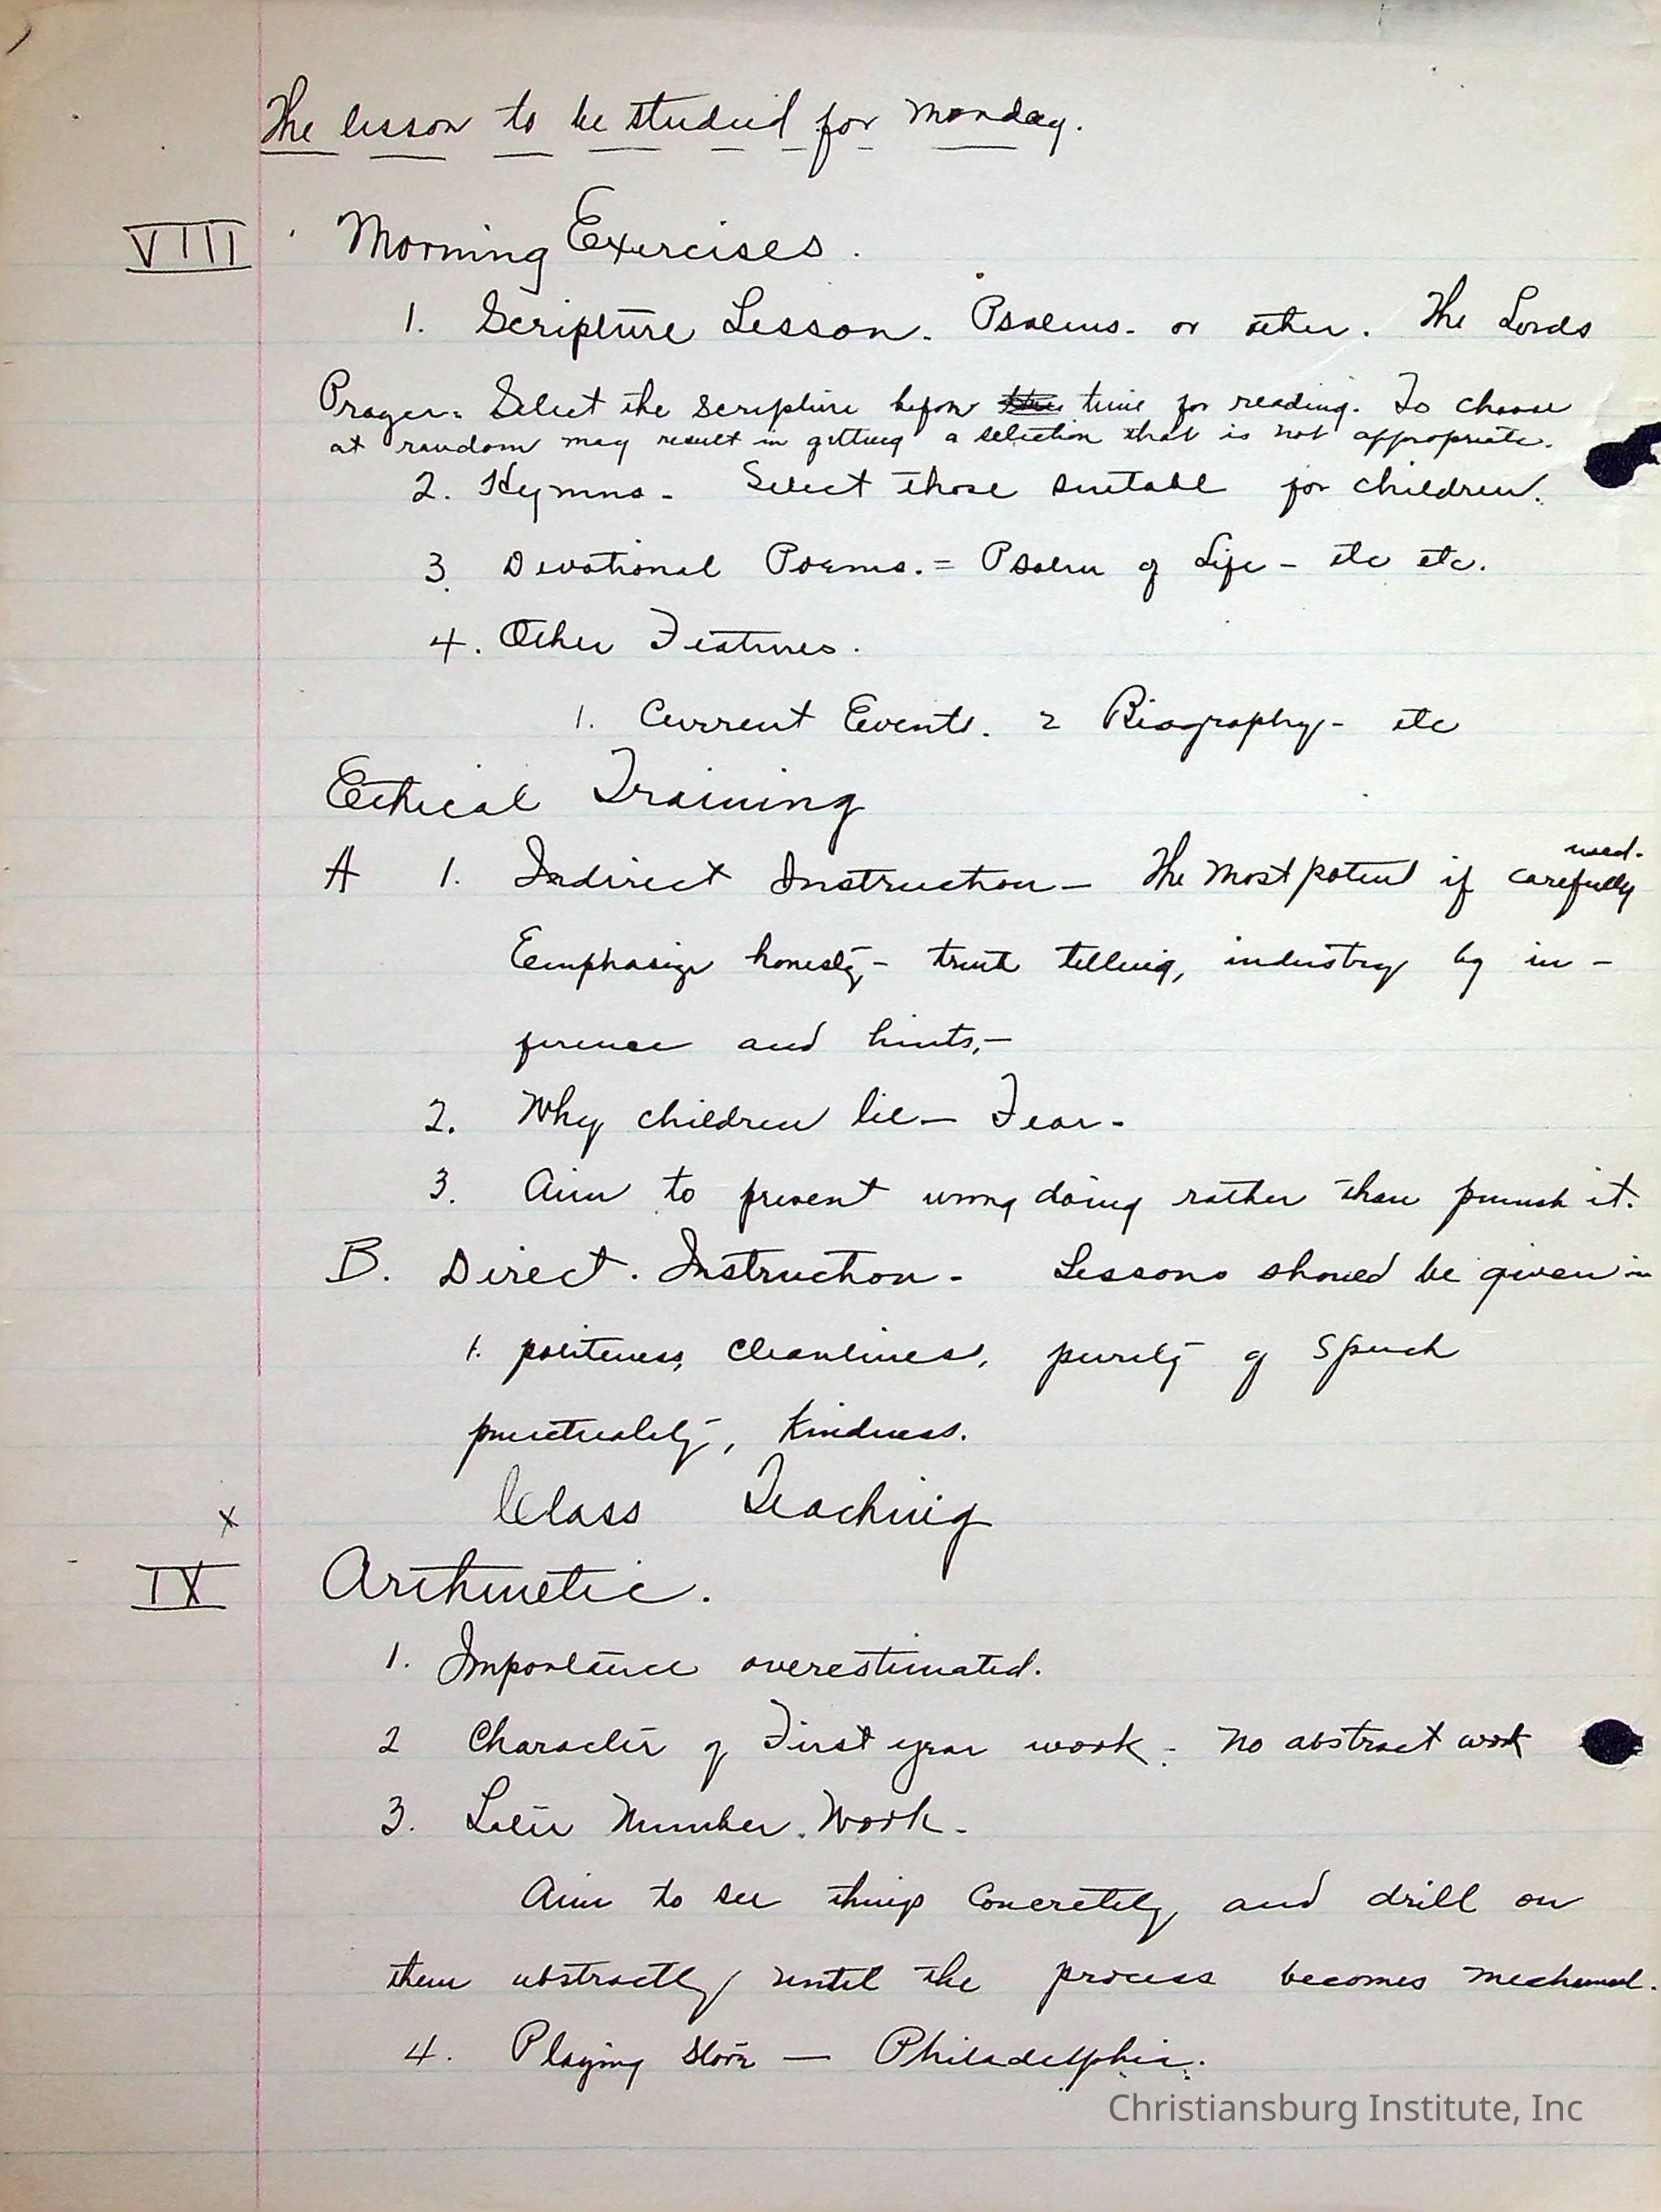 The lesson to be studied for Monday.
VIII Morning Exercises.
1. Scripture Lesson. Psalms. or other. The Lords
Prayer. Select the Scripture before time for reading. To choose
at random may result in getting a selection that is not appropriate.
2. Hymns - Select those suitable for children.
3. Devotional Poems. = Psalm of Life - etc etc.
4. Other Features.
1. Current Events. 2 Biography - etc
Ethical Training
used.
A 1. Indirect Instruction - The most potent if carefully
Emphasize honesty - truth telling, industry by in -
ference and hints, -
2. Why children lie - Fear -
3. Aim to prevent wrong doing rather than punish it.
B. Direct. Instruction - Lessons should be given in
1. politeness, cleanliness, purity of speech
punctuality, kindness.
x Class Teaching
IX Arithmetic.
1. Importance overestimated.
2 Character of First year work - no abstract work
3. Later Number. Work -
Aim to see things concretely and drill on
them abstractly until the process becomes mechanical.
4. Playing store — Philadelphia.
Christiansburg Institute, Inc